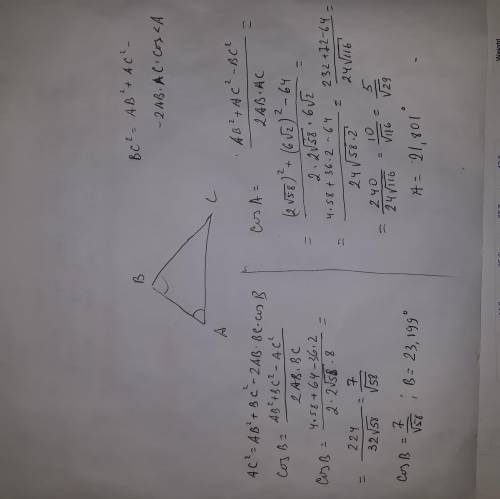 B
A
C
BC² = AB² + AC² -
- 2AB·AC·cos<A
AC² = AB² + BC² - 2AB·BC·cosB
cosB = (AB² + BC² - AC²)/(2AB·BC)
cosB = (4·58 + 64 - 36·2)/(2·2√58·8) =
= 224/(32√58) = 7/√58
cosB = 7/√58 ; B = 23,199°
cosA = (AB² + AC² - BC²)/(2AB·AC) =
= ((2√58)² + (6√2)² - 64)/(2·2√58·6√2) =
= (4·58 + 36·2 - 64)/(24√58·2) = (232 + 72 - 64)/(24√116) =
= 240/(24√116) = 10/√116 = 5/√29
A = 21,801°